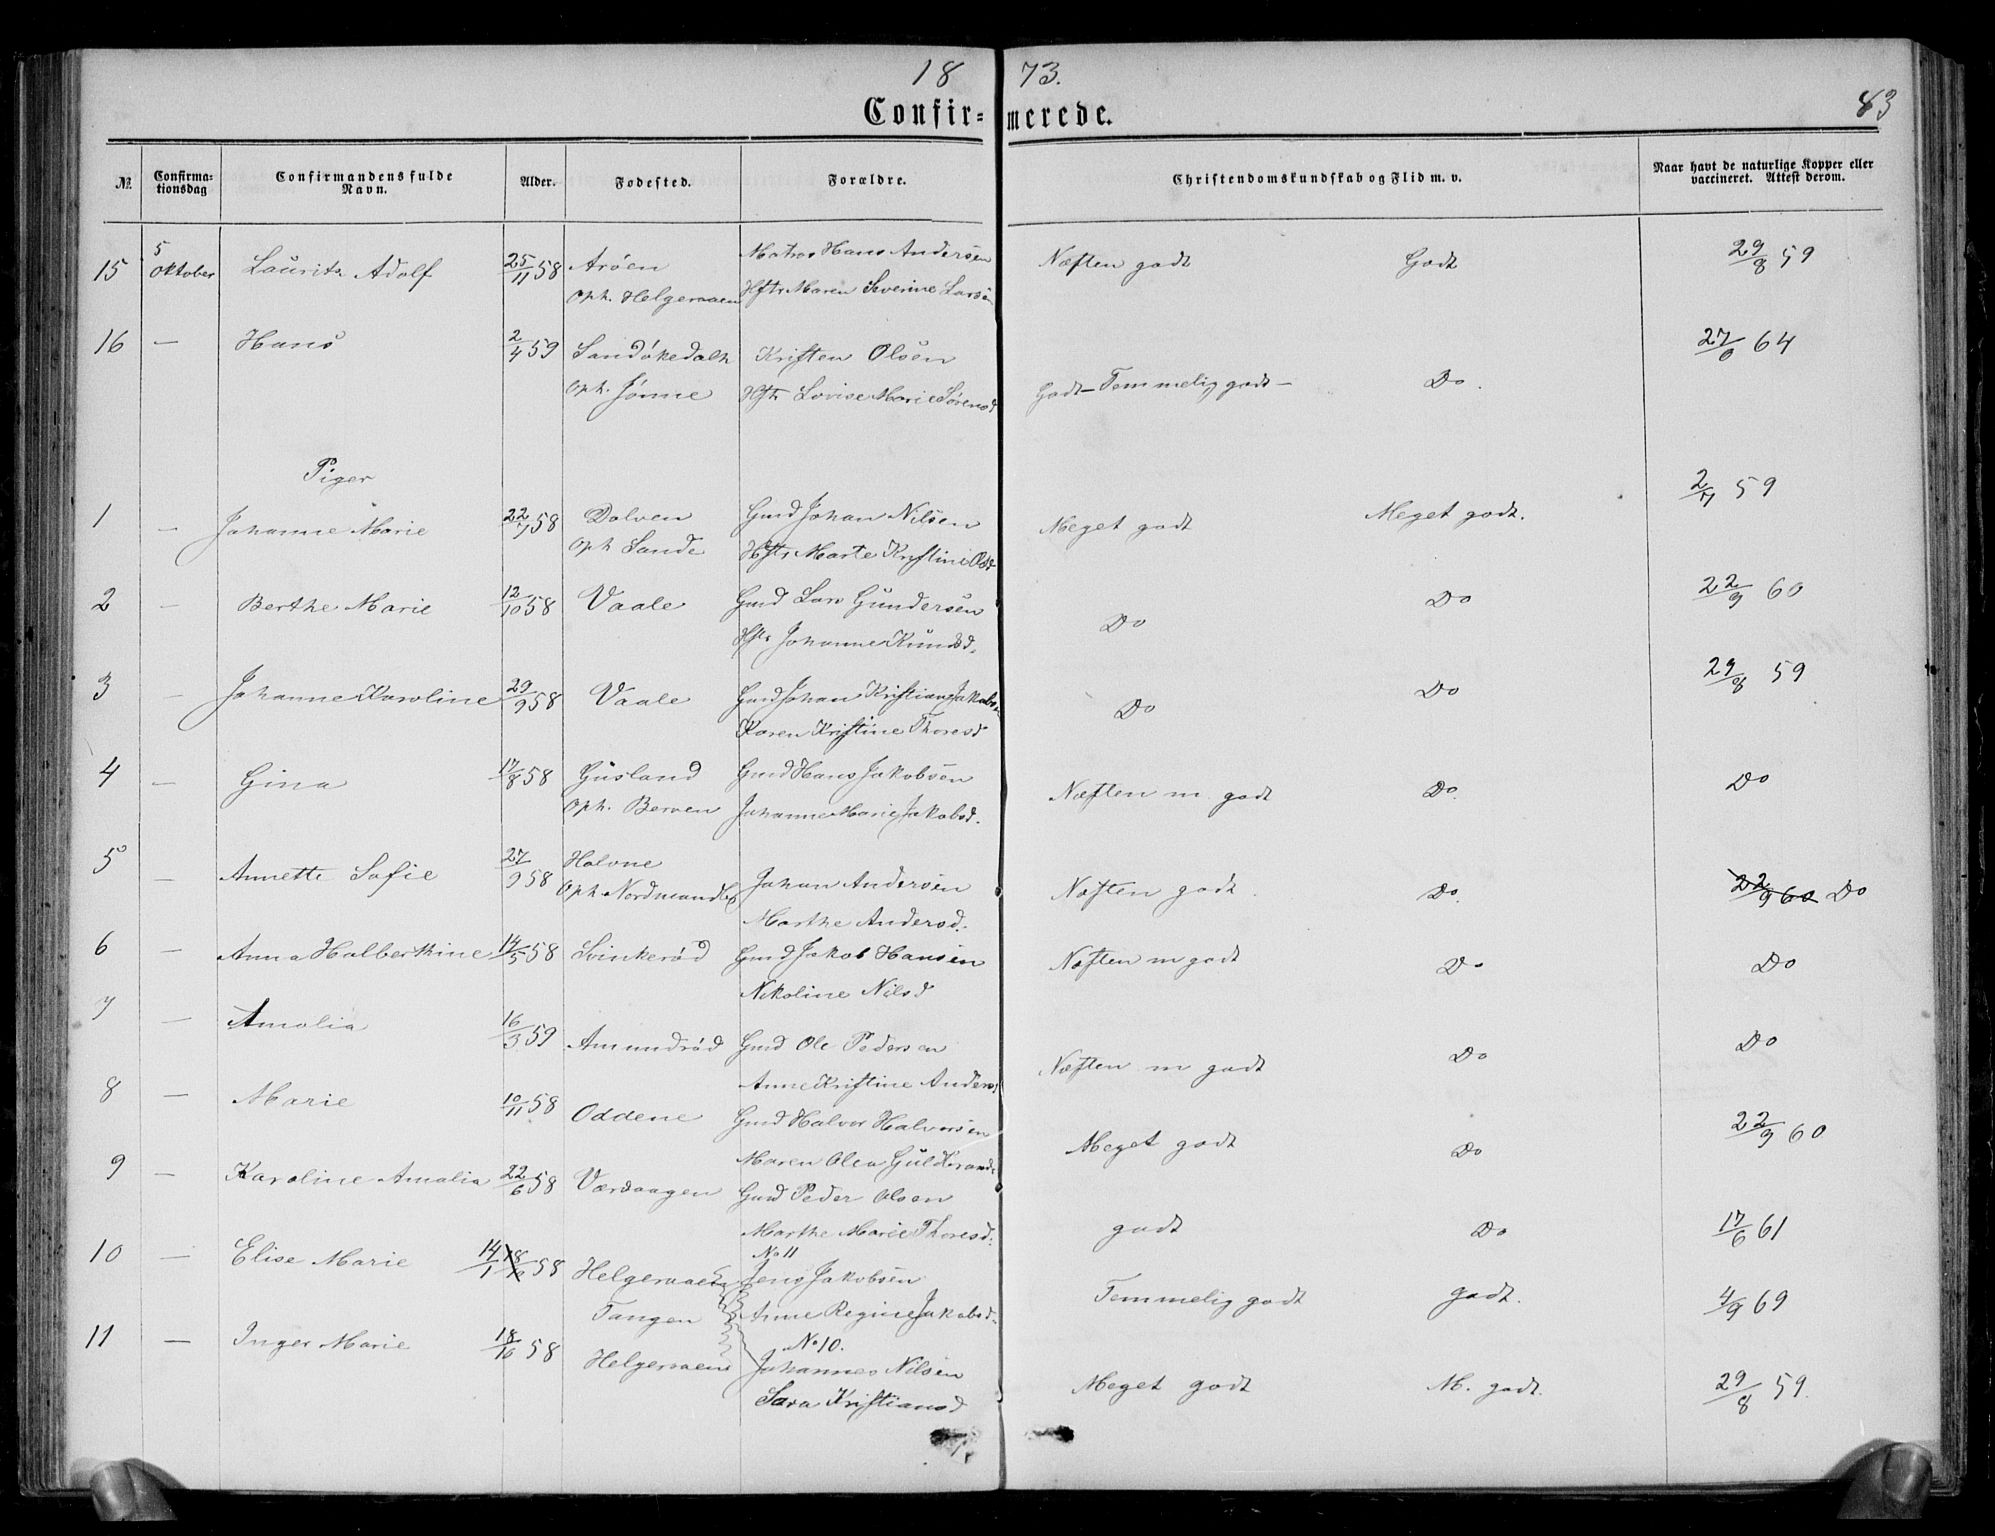 18 73.
Confir=merede.
83
No. Confirma-tionsdag Confirmandens fulde Navn. Alder. Fødested. Forældre. Christendomskundskab og Flid m. v. Naar havt de naturlige Kopper eller vaccineret. Attest derom.
15 5 Oktober Lauritz Adolf 25/11 58 Arøen Matros Hans Andersen Næsten godt Godt 29/8 59
Oph. Helgeraaen Hstr Maren Severine Larsen
16 — Hans 2/4 59 Sandøkedalen Kristen Olsen 27/6 64
Oph. Jønne Hstr Lovise Marie Sørensd Godt - Temmelig godt - Do.
Piger
1 — Johanne Marie 22/7 58 Dolven Gmd Johan Nilsen Meget godt Meget godt. 2/7 59
Oph Sande Hstr Marte Kristine Olsd
2 — Berthe Marie 12/10 58 Vaale Gmd Lars Gundersen Do Do 22/9 60
Hstr Johanne Knudsd.
3 — Johanne Karoline 29/9 58 Vaale Gmd Johan Kristian Jakobsen Do Do 29/8 59
Karen Kristine Thoresd
4 — Gina 17/8 58 Gusland Gmd Hans Jakobsen Næsten m godt Do. Do
Oph. Berven Johanne Marie Jakobsd.
5 — Annette Sofie 27/9 58 Holvne Johan Andersen Næsten godt. Do. 22/9 60 Do
Oph. Marthe Andersd.
6 — Anna Halberthine 14/5 58 Svinkerød Gmd Jakob Hansen Næsten m godt Do Do
Nikoline Nilsd
7 — Amalia 16/3 59 Amundrød Gmd Ole Pedersen Næsten m godt Do Do
Anne Kristine Andersd
8 — Marie 10/11 58 Oddene Gmd Halvor Halvorsen Meget godt Do 22/9 60
Maren Olea
9 — Karoline Amalia 22/6 58 Værvaagen Gmd Peder Olsen godt Do 17/6 61
Marthe Marie Thoresd.
No 11
10 — Elise Marie 14/1 18/10 58 Helgeraaen Jens Jakobsen Temmelig godt godt. 4/9 69
Tangen Anne Regine Jakobsd.
No 10.
11 — Inger Marie 18/10 58 Helgeraaen Johannes Nilsen Meget godt M. godt. 29/8 59.
Sara Kristiansd